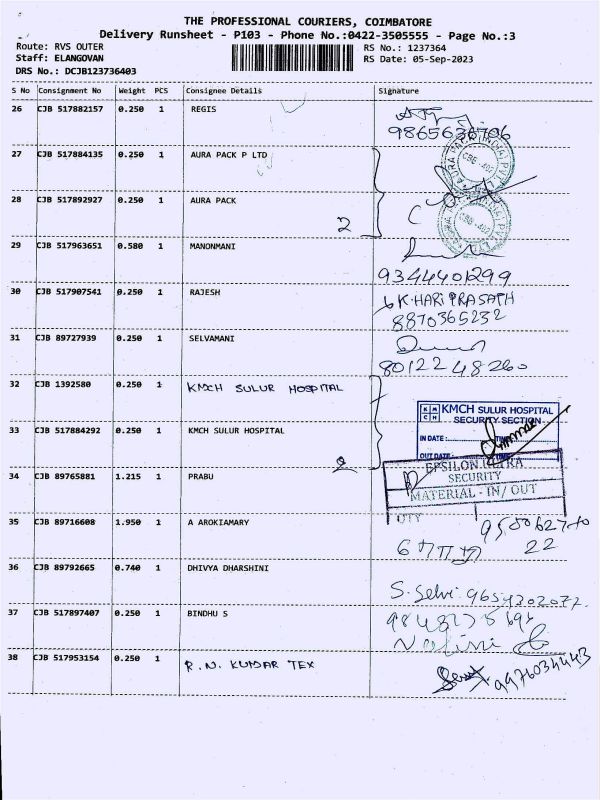 THE PROFESSIONAL COURIERS, COIMBATORE
Delivery Runsheet - P103 - Phone No.:0422-3505555 - Page No.:3
Route: RVS OUTER RS No.: 1237364
Staff: ELANGOVAN RS Date: 05-Sep-2023
DRS No.: DCJB123736403
S No Consignment No Weight PCS Consignee Details Signature
26 CJB 517882157 0.250 1 REGIS
9865636706
27 CJB 517884135 0.250 1 AURA PACK P LTD
28 CJB 517892927 0.250 1 AURA PACK
2
29 CJB 517963651 0.580 1 MANONMANI
9344401299
30 CJB 517907541 0.250 1 RAJESH
K.HARI PRASATH
8870365232
31 CJB 89727939 0.250 1 SELVAMANI
8012248260
32 CJB 1392580 0.250 1 KMCH SULUR HOSPITAL
KMCH SULUR HOSPITAL
SECURITY SECTION
IN DATE :
OUT DATE
33 CJB 517884292 0.250 1 KMCH SULUR HOSPITAL
2
34 CJB 89765881 1.215 1 PRABU
SECURITY
MATERIAL - IN/ OUT
QTY
35 CJB 89716608 1.950 1 A AROKIAMARY
22
36 CJB 89792665 0.740 1 DHIVYA DHARSHINI
S. Selvi.
37 CJB 517897407 0.250 1 BINDHU S
38 CJB 517953154 0.250 1 R.N. KUMAR TEX
9976034443